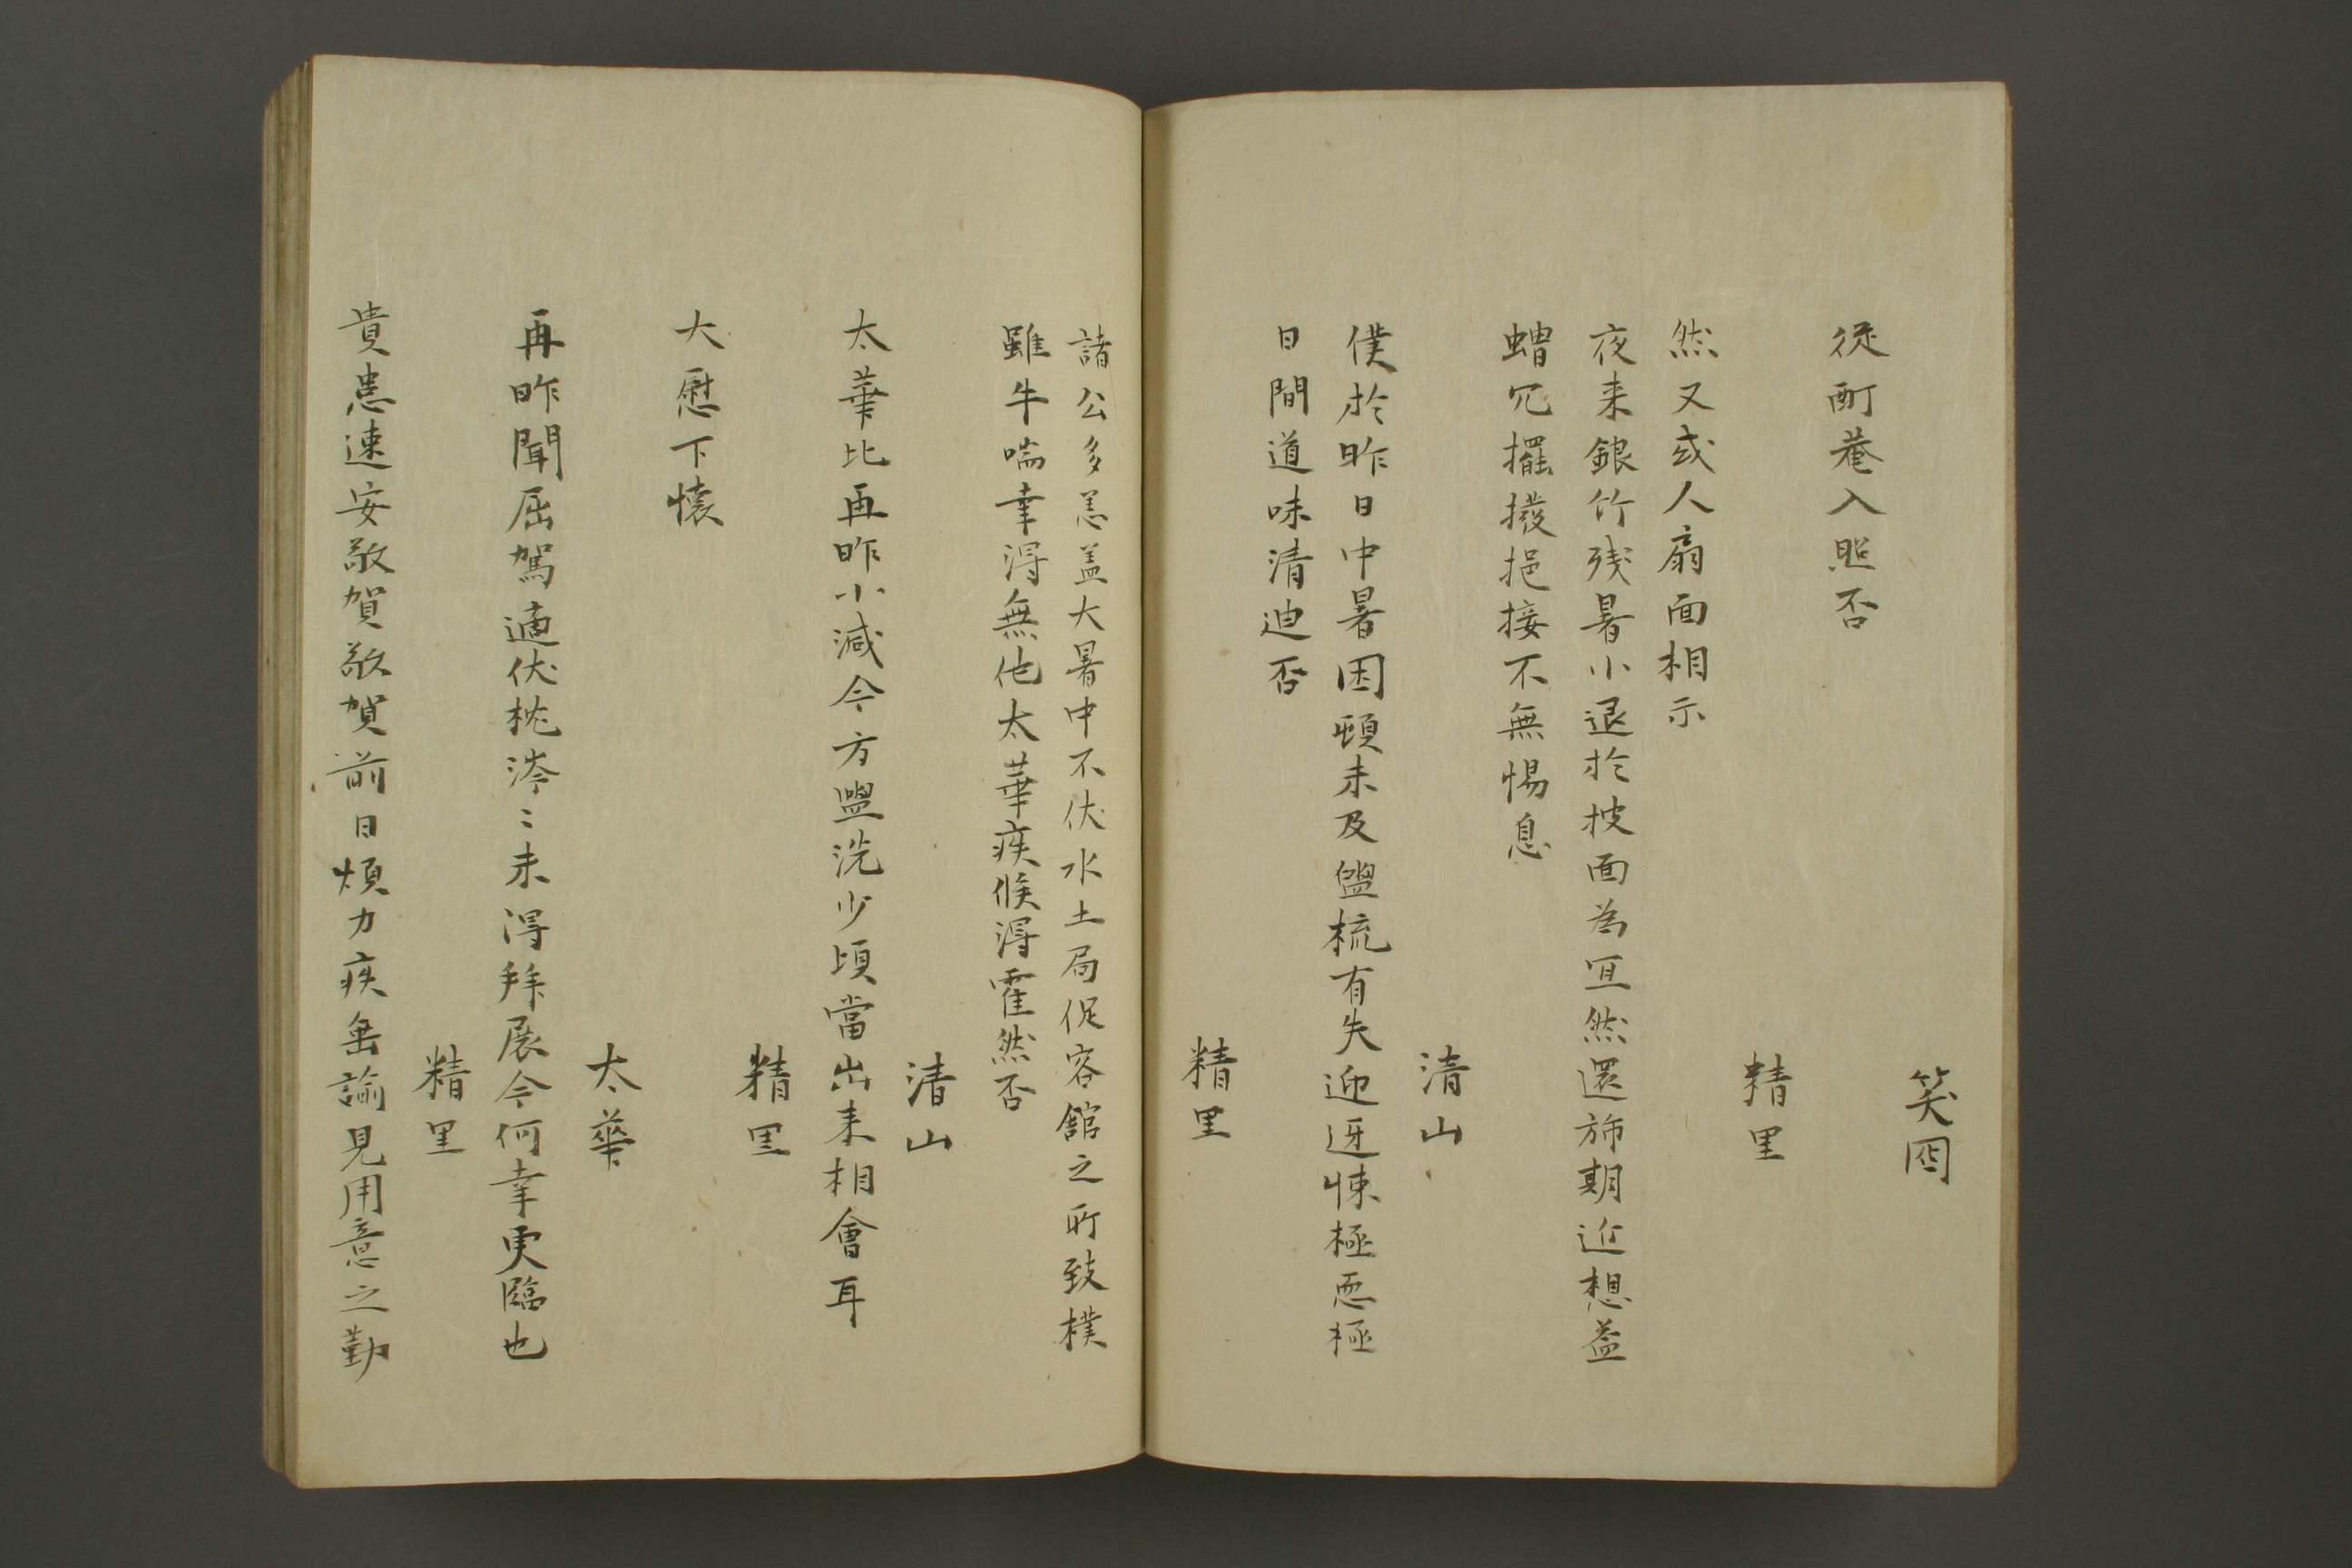 笑囧
従酊菴入照否
精里
然又或人扇面相示
夜来銀竹残暑小退於披面為冝然還斾期近想益
蝟冗擺撥挹接不無惕息
清山
僕於昨日中暑困頓未及盥梳有失迎迓悚極恧極
日間道味清迪否
精里
諸公多恙盖大暑中不伏水土局促客館之所致樸
雖牛喘幸淂無他太華疾候淂霍然否
清山
太華比再昨小減今方盥洗少頃當出来相會耳
精里
大慰下懐
太華
再昨聞屈駕適伏枕涔〻未淂拜展今何幸更臨也
精里
貴恙速安敬賀敬賀前日煩力疾垂諭見用意之勤